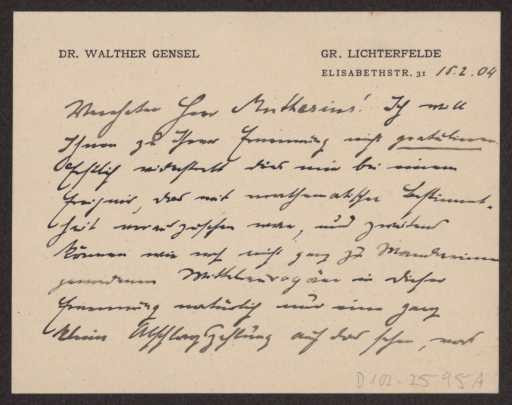 DR. WALTHER GENSEL
GR. LICHTERFELDE
ELISABETHSTR. 31 15.2.04
Verehrter Herr Muthesius! Ich will
Ihnen zu Ihrer Ernennung nicht gratulieren.
Erstlich widerstrebt dies mir bei einem
Ereignis, das mit mathematischer Bestimmt-
heit vorauszusehen war, und zweitens
können wir noch nicht ganz zu Mandarinen
gewordenen Mitteleuropäer in dieser
Ernennung natürlich nur eine ganz
kleine Abschlagszahlung auf das sehen, was
D 102-2595 A